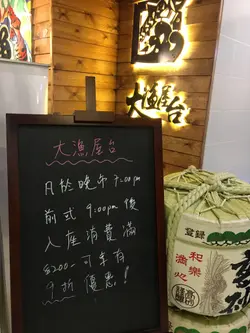 大漁屋台
大漁屋台
凡於晚市 7:00pm
前或 9:00pm 後
入座消費滿
$200- 可享有
9折優惠！
登録
和樂
満心